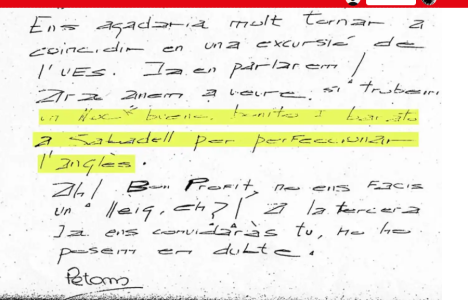 Ens agadaria molt tornar a
coincidir en una excursió de
l'UES. Ja en parlarem!
Ara anem a veure si trobem
un bueno, bonito
a Sabadell per perfeccionar
l'anglès.
Ah! Bon Profit, no ens FACIS
un lleig, eh?! A la tercera
Ja ens convidaràs tu, no ho
posem en dubte.
Petons